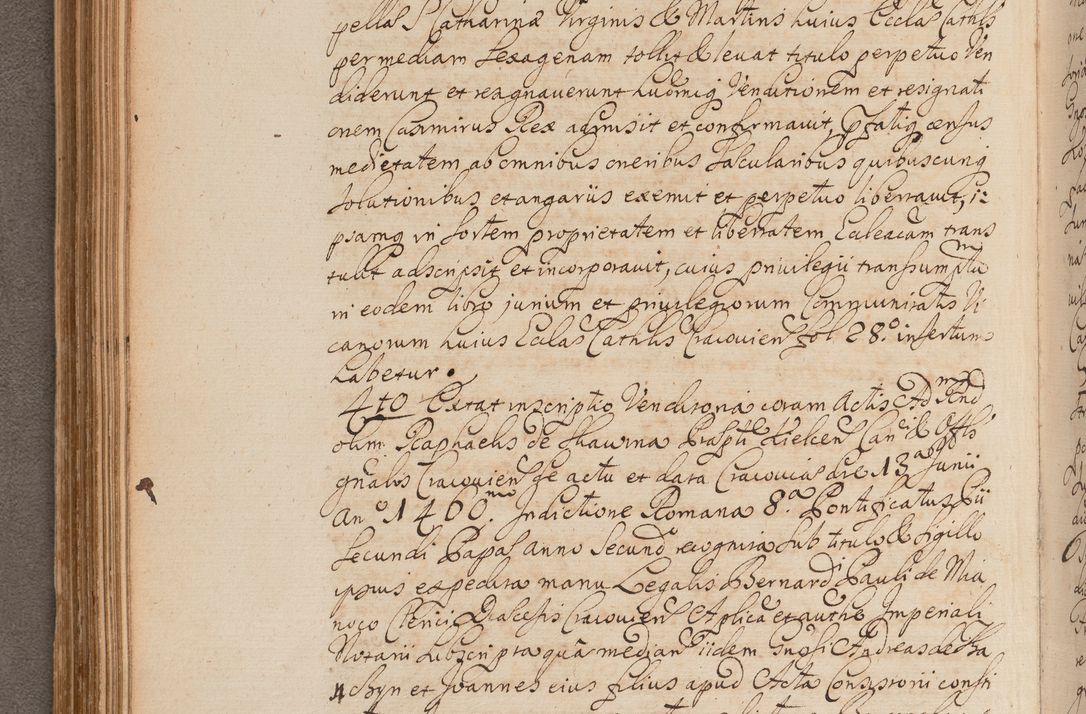 pellas S Catharinæ Virginis & Martiris huius Ecclæ Cathlis
per mediam sexagenam tollit & levat titulo perpetuo Ven
diderunt et resignaverunt huiusmõi Venditionem et resignati
onem Casimirus Rex admisit et confirmavit, pfatiq census
medietatem ab omnibus oneribus sæcularibus quibuscunq
solutionibus et angariis exemit et perpetuo liberavit, i:
psamq in sortem proprietatem et libertatem Ecleacam trans
tulit adscripsit et incorporavit, cuius privilegii transsumptũ
in eodem libro jurium et privilegiorum Communitatis Vi
canorum huius Ecclæ Cathlis Cracovien fol 28.º insertum
habetur.
4to Extat inscriptio Venditoria coram Actis Adm Rnd
olim Raphaelis de Skawina Præpti Kielcen Can & Offlis
gnalis Cracovien ge actu et data Cracoviæ die 13ª Junii
An º 1460.mo Indictione Romana 8.ª Pontificatus Pii
Secundi Papæ anno Secundo recognita sub titulo & sigillo
ipsius expedita manu Legalis Bernardi Pauli de Mia
noco Clerici Diæcesis Cracovien Aplica et authe Imperiali
Notarii subscripta quã median iidem Gnosi Andreas de Ba
chyn et Joannes eius filius apud Acta Consistorii consti